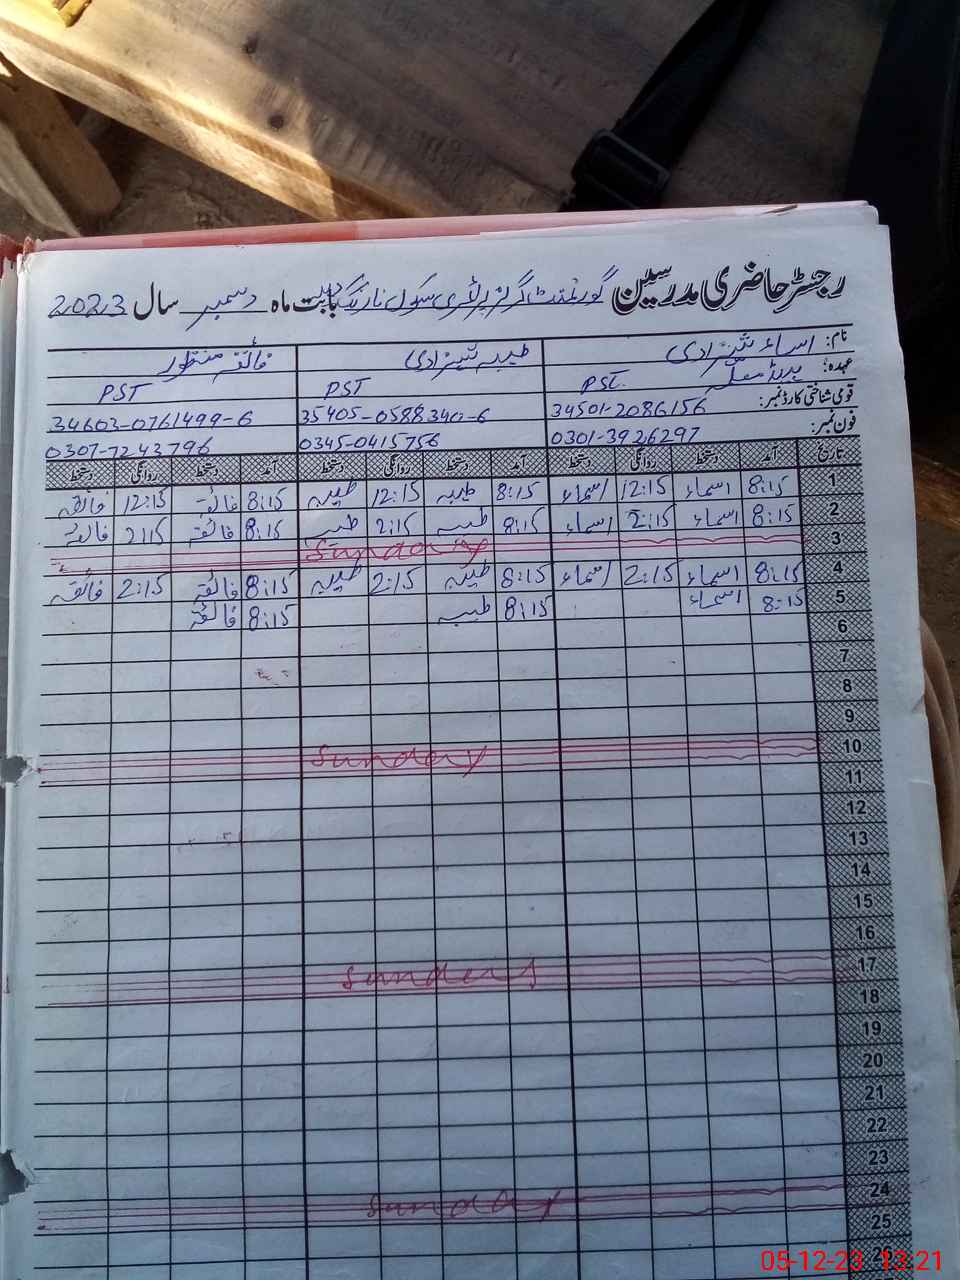 رجسٹر حاضری مدرسین گورنمنٹ گرلز پرائمری سکول بابت ماہ دسمبر سال 2023
نام: اسماء شہزادی طیبہ شہزادی فائقہ منظور
عہدہ: ہیڈ معلمہ PST. PST PST
قومی شناختی کارڈ نمبر: 34501-2086156 35405-0588340-6 34603-0761499-6
فون نمبر: 0301-3926297 0345-0415756 0307-7243796
تاریخ آمد دستخط روانگی دستخط آمد دستخط روانگی دستخط آمد دستخط روانگی دستخط
1 8:15 اسماء 12:15 اسماء 8:15 طیبہ 12:15 طیبہ 8:15 فائقہ 12:15 فائقہ
2 8:15 اسماء 2:15 اسماء 8:15 طیبہ 2:15 طیبہ 8:15 فائقہ 2:15 فائقہ
3 Sunday
4 8:15 اسماء 2:15 اسماء 8:15 طیبہ 2:15 طیبہ 8:15 فائقہ 2:15 فائقہ
5 8:15 اسماء 8:15 طیبہ 8:15 فائقہ
6
7
8
9
10 Sunday
11
12
13
14
15
16
17 Sunday
18
19
20
21
22
23
24 Sunday
25
26
05-12-23 13:21